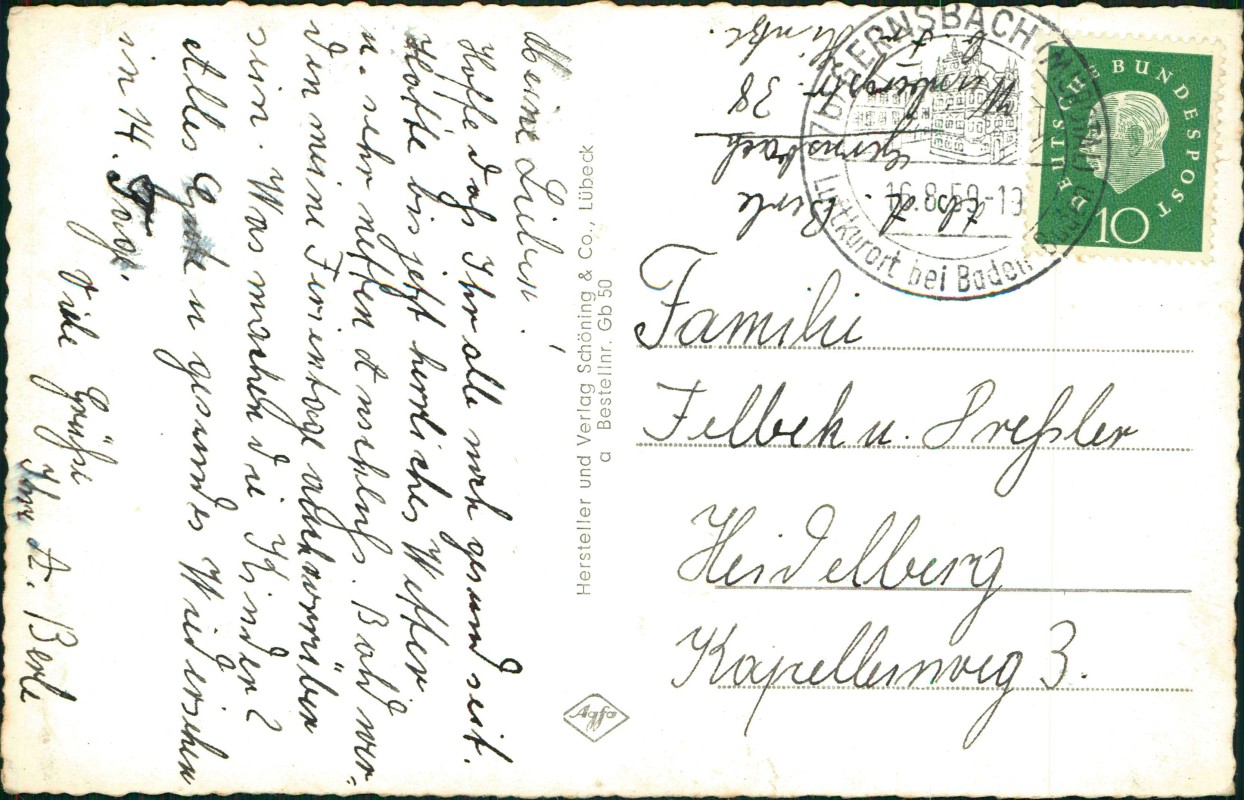 Meine Lieben!
Hoffe daß Ihr alle noch gesund seit.
Hatte bis jetzt herrliches Wetter
u. sehr netten Anschluß. Bald wer-
den meine Ferientage auch vorrüber
sein. Was machen die Kinder?
Alles Gute u gesundes Wiedersehen
in 14. Tage.
Viele Grüße
Ihre A. Berle
Hersteller und Verlag Schöning & Co., Lübeck
a Bestellnr. Gb 50
Agfa
Abs. Berle
Gernsbach
38
b. Fr.
(17b) GERNSBACH (MURGTAL)
16.8.59-19
Luftkurort bei Baden-Baden
DEUTSCHE BUNDESPOST
10
Familie
Felbek u. Dreßler
Heidelberg
Kapellenweg 3.